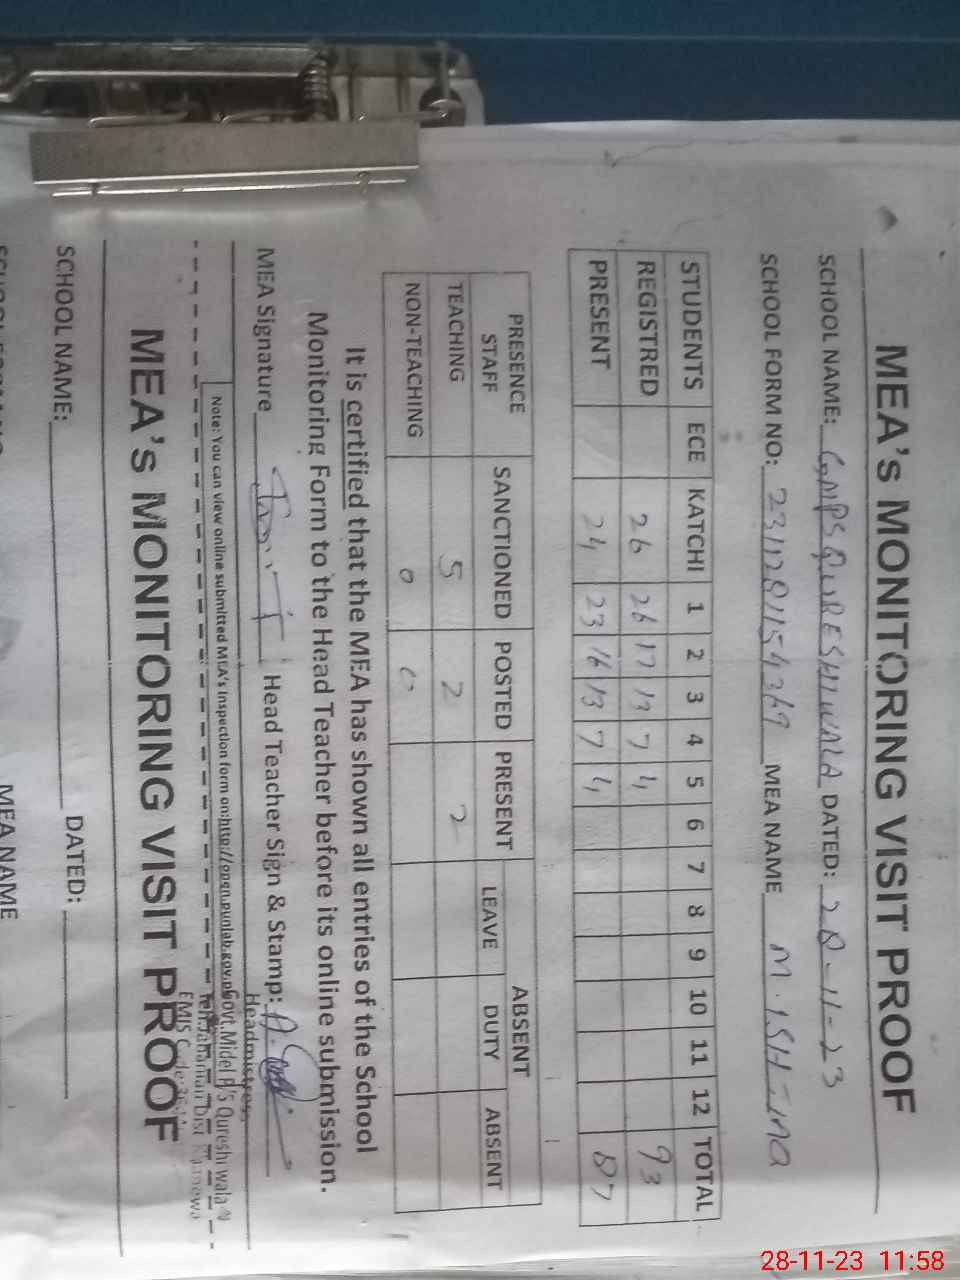 MEA's MONITORING VISIT PROOF
SCHOOL NAME: GMPS QURESHIWALA DATED: 28-11-23
SCHOOL FORM NO: MEA NAME M.
STUDENTS ECE KATCHI 1 2 3 4 5 6 7 8 9 10 11 12 TOTAL
REGISTRED 26 26 17 13 7 4 93
PRESENT 24 23 16 13 7 4 87
PRESENCE STAFF SANCTIONED POSTED PRESENT ABSENT
LEAVE DUTY ABSENT
TEACHING 5 2 2
NON-TEACHING 0 0
It is certified that the MEA has shown all entries of the School
Monitoring Form to the Head Teacher before its online submission.
MEA Signature Head Teacher Sign & Stamp:
Headmistress
Note: You can view online submitted MEA's Inspection form on:http://open.punjab.gov.p
Govt.Midel P/S Qureshi wala
EMIS Code:
MEA's MONITORING VISIT PROOF
SCHOOL NAME: DATED:
MEA NAME
28-11-23 11:58